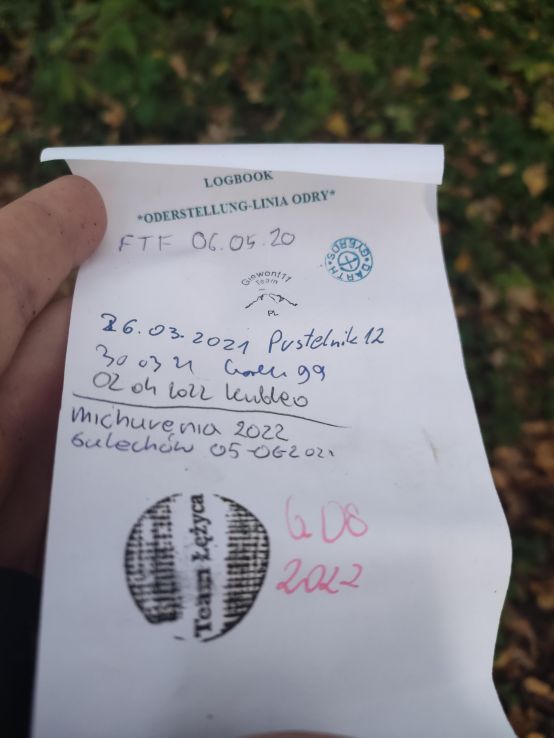 LOGBOOK
*ODERSTELLUNG-LINIA ODRY*
FTF 06.05.20
DARTH GYEROS
Giewont11
Team
PL
26.03.2021 Pustelnik12
30 03 21
02 04 2022
Michurenia 2022
Sulechów 05-06 2021
Team Łężyca
GDS
2022